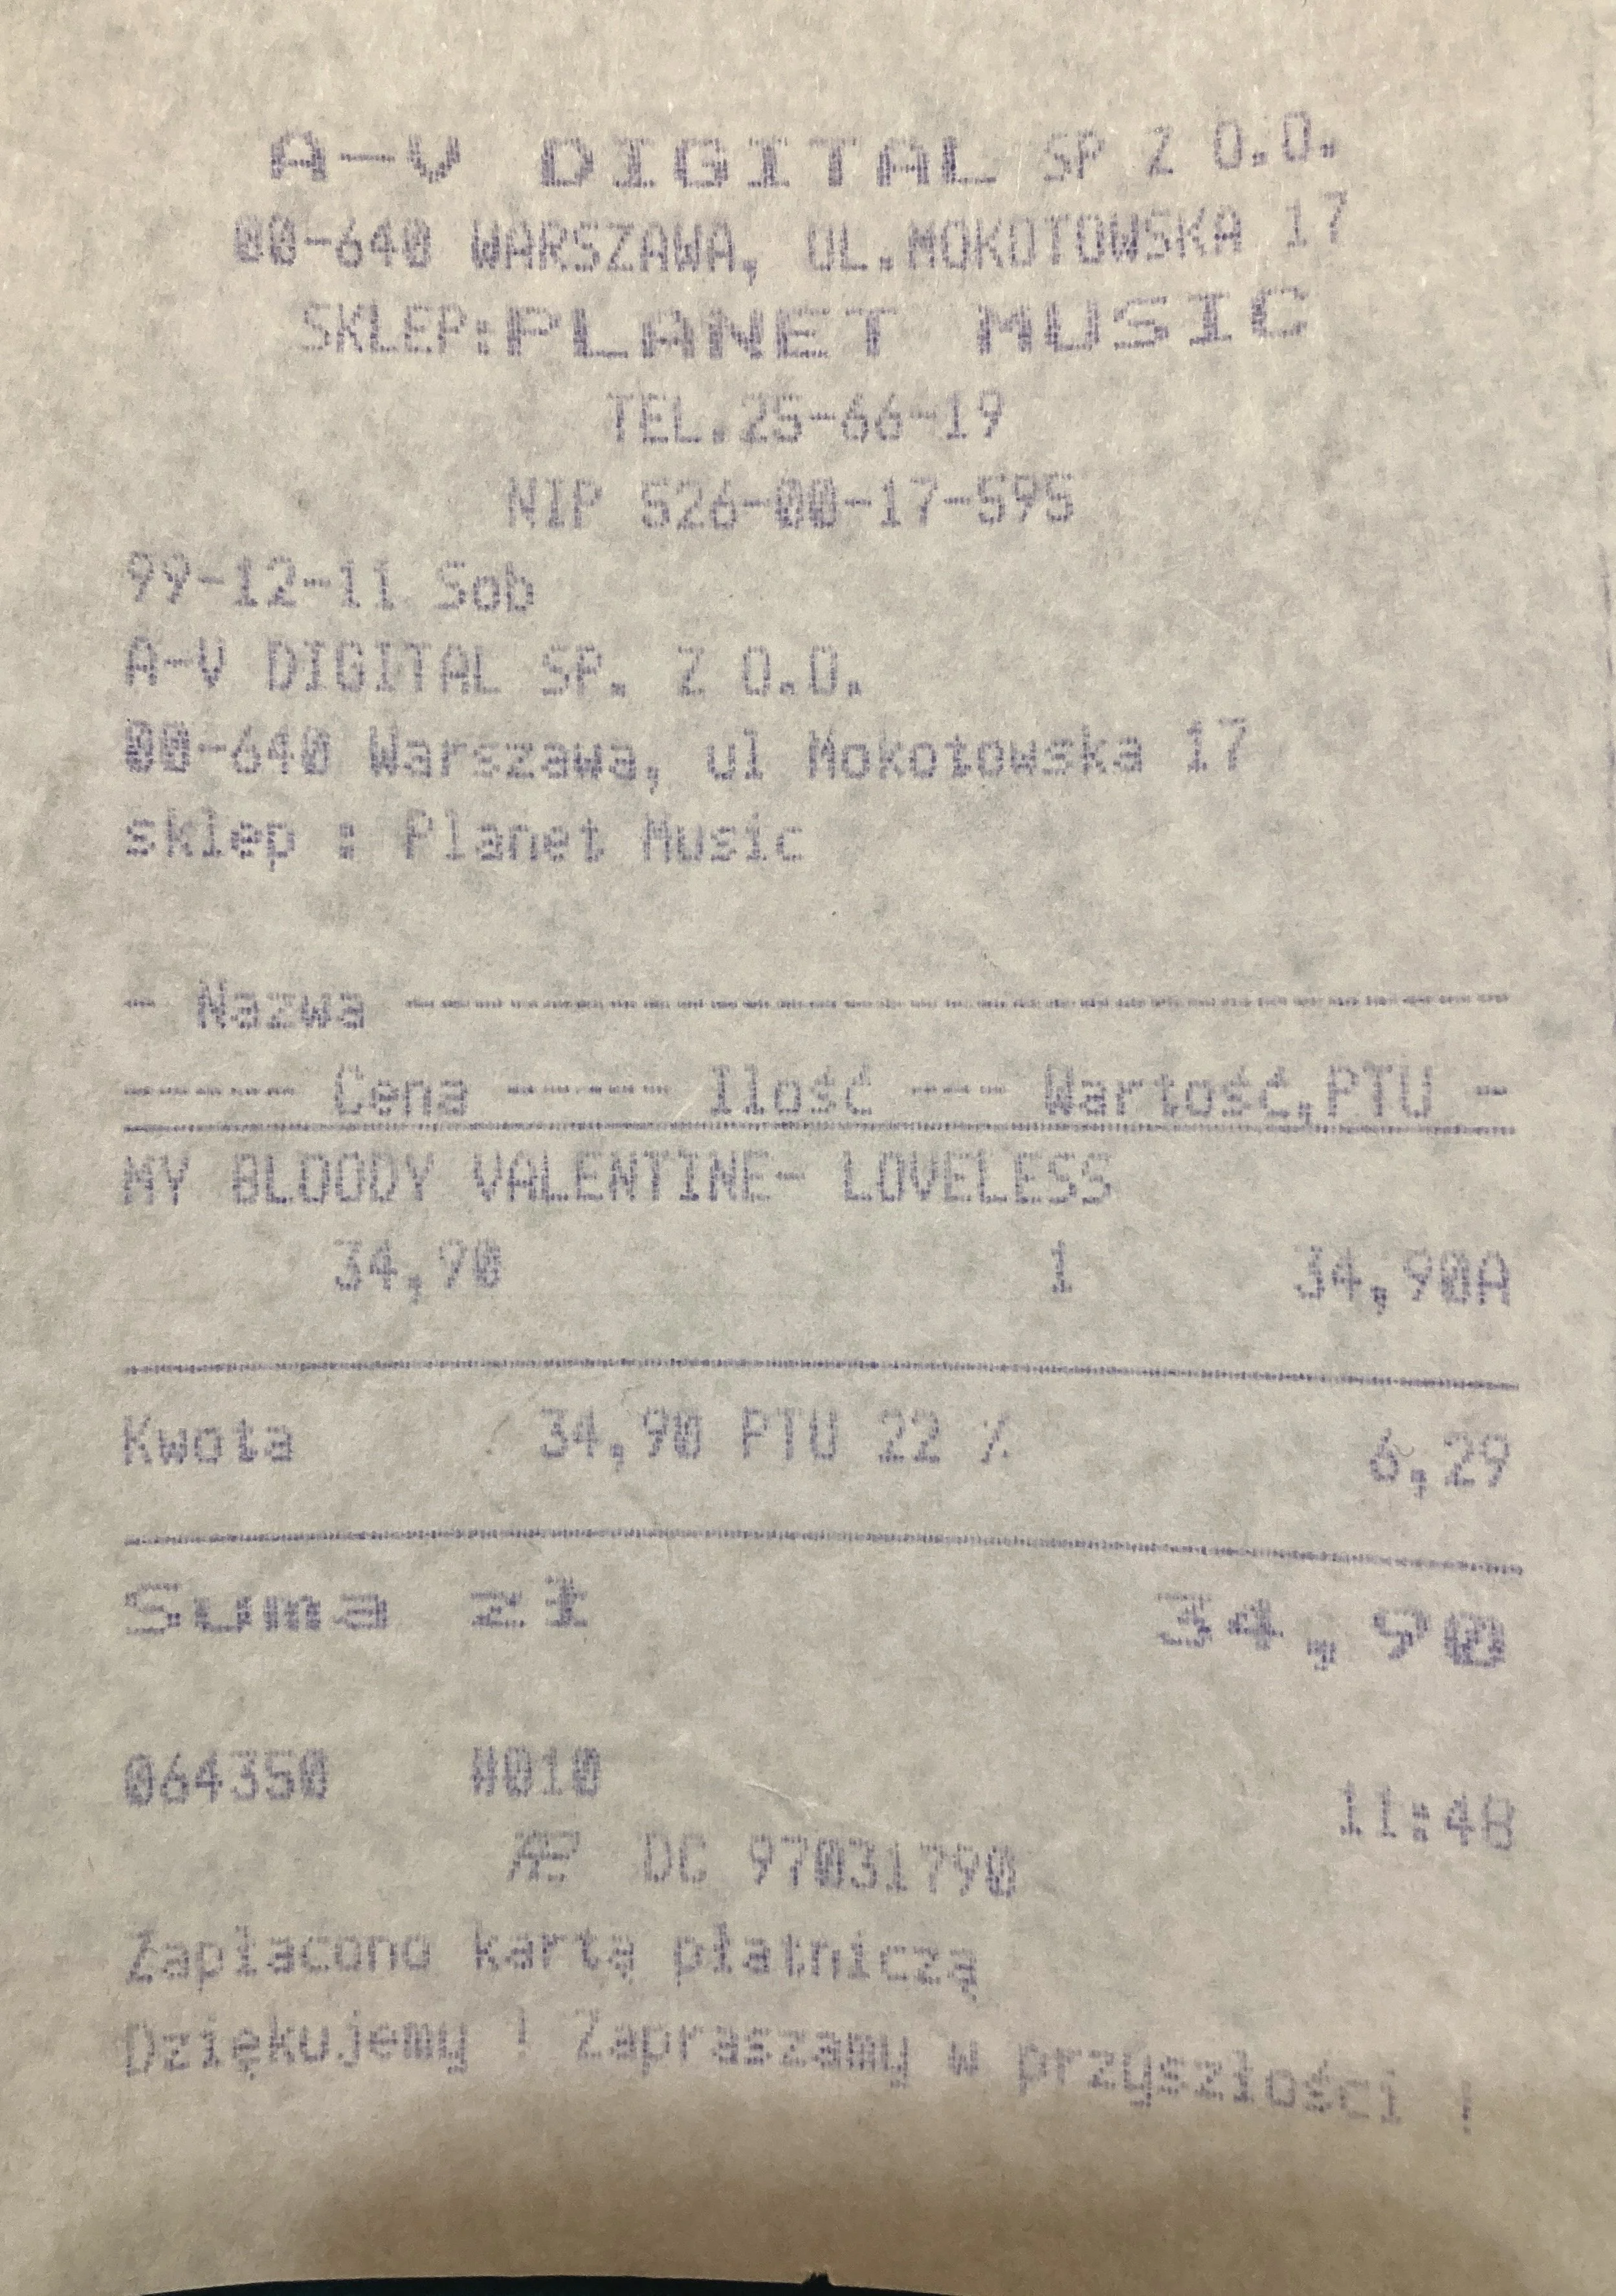 A-V DIGITAL SP Z O.O.
00-640 WARSZAWA, UL.MOKOTOWSKA 17
SKLEP:PLANET MUSIC
TEL.25-66-19
NIP 526-00-17-595
99-12-11 Sob
A-V DIGITAL SP. Z O.O.
00-640 Warszawa, ul Mokotowska 17
sklep : Planet Music
- Nazwa -------------------------------
----- Cena ----- Ilość --- Wartość,PTU -
MY BLOODY VALENTINE- LOVELESS
34,90 1 34,90A
Kwota 34,90 PTU 22 % 6,29
Suma zł 34,90
064350 #010 11:48
DG 97031790
Zapłacono kartą płatniczą
Dziękujemy ! Zapraszamy w przyszłości !